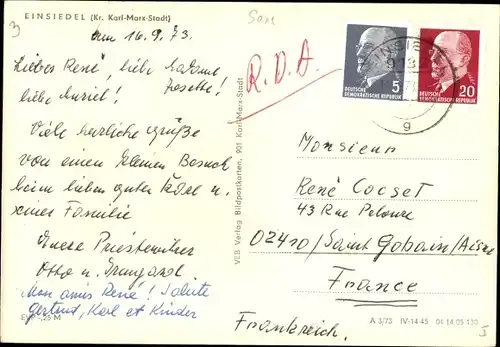 3
EINSIEDEL (Kr. Karl-Marx-Stadt)
Saxe
am 16.9.73.
Lieber René, liebe
Josette!
liebe Muriel!
Viele herzliche Grüße
von einem kleinen Besuch
beim lieben guten Karl u.
seiner Familie
Eure
Otto u. Irmgard
Mon amis René! Salute
Gertrud, Karl et Kinder
EVP -,25 M
R.D.A.
VEB Verlag Bildpostkarten, 901 Karl-Marx-Stadt
5
DEUTSCHE
DEMOKRATISCHE REPUBLIK
20
DEUTSCHE
DEMOKRATISCHE REPUBLIK
g
Monsieur
René Cocset
43 Rue Pelouze
02410/Saint Gobain/Aisne
France
Frankreich.
A 3/73 IV-14-45 01 14 05 130